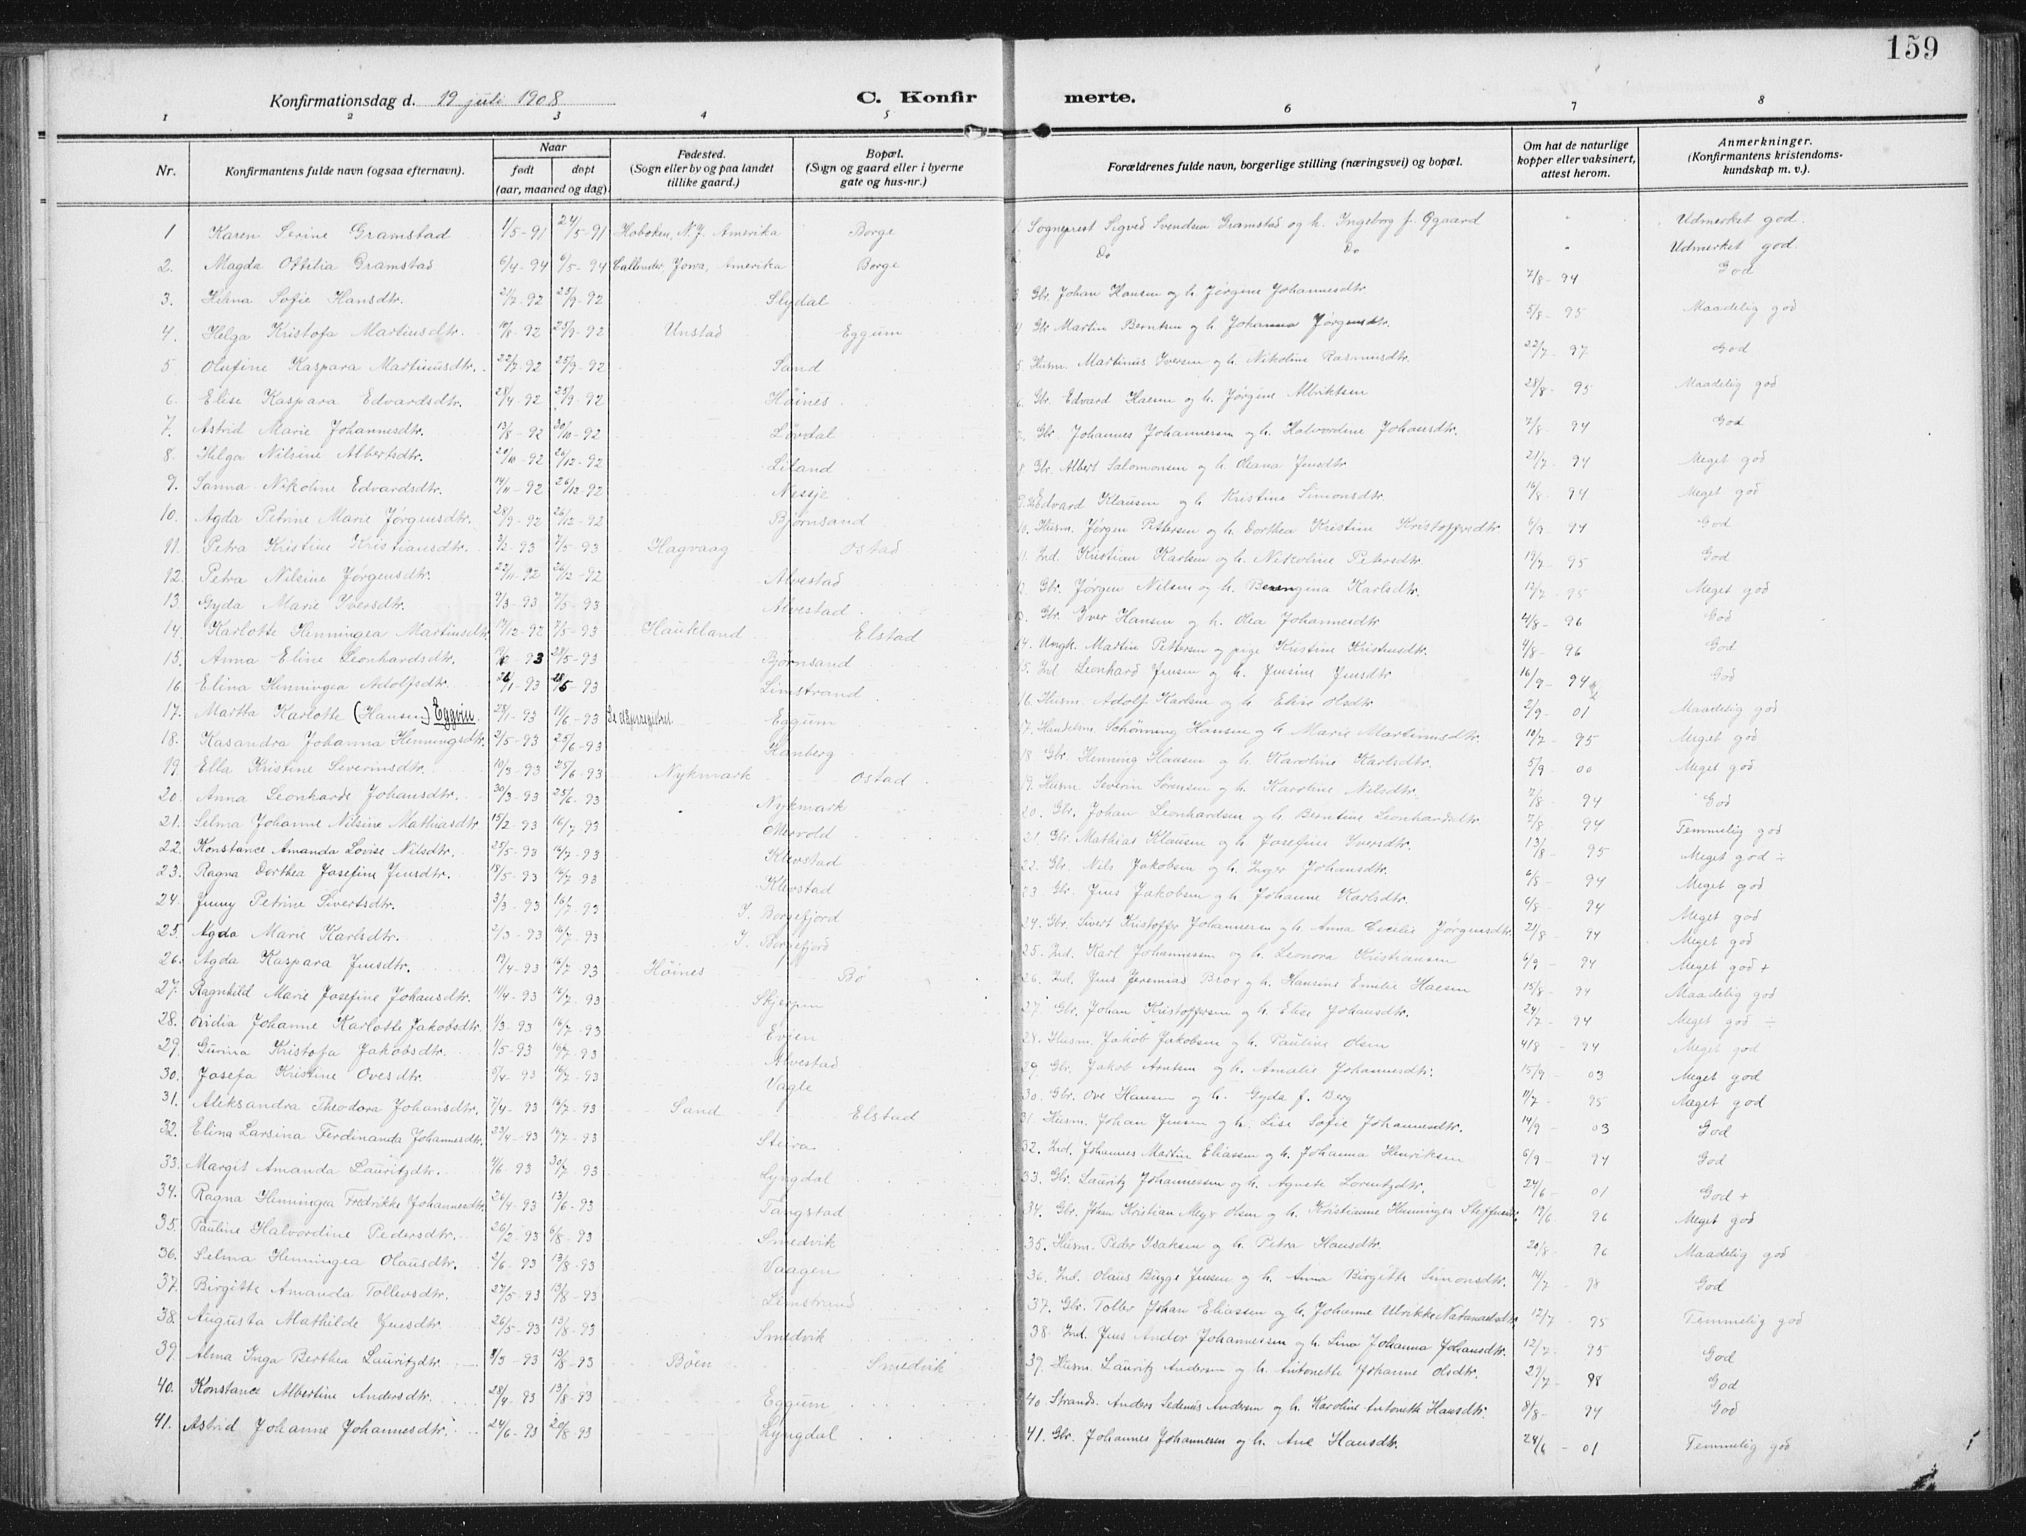 159
Konfirmationsdag d. 19 juli 1908
C. Konfir merte.
1 2 3 4 5 6 7 8
Nr. Konfirmantens fulde navn (ogsaa efternavn). Naar født døpt (aar, maaned og dag) Fødested. (Sogn eller by og paa landet tillike gaard.) Bopæl. (Sogn og gaard eller i byerne gate og hus-nr.) Forældrenes fulde navn, borgerlige stilling (næringsvei) og bopæl. Om hat de naturlige kopper eller vaksinert, attest herom. Anmerkninger. (Konfirmantens kristendoms-kundskap m. v.).
1 Karen Serine Gramstad 1/5-91 24/5-91 Hoboken, N.J. Amerika Borge 1 Sogneprest Sigved Svendsen Gramstad og h. Ingeborg f. Øgaard " Udmerket god.
2. Magda Ottilia Gramstad 6/4-94 6/5-94 Callender Jowa, Amerika Borge 2 Do Do " Udmerket god.
3. Helna Sofie Hansdtr. 21/7-92 25/9-92 Slydal 3. Gbr. Johan Hansen og h. Jørgine Johannesdtr 7/8-94 God
4. Helga Kristofa Martinsdtr. 19/8-92 25/9-92 Unstad Eggum 4 Gbr Martin Berntsen og h. Johanna Jørgensdtr. 5/8-95 Maadelig god
5 Olufine Kaspara Martinusdtr. 22/7-92 25/9-92 Sand 5. Husm. Martinus Iversen og h. Nikoline Rasmusdtr. 22/7-97 God
6. Elise Kaspara Edvardsdtr. 28/4-92 25/9-92 Høines 6 Gbr. Edvard Haesen og h. Jørgine Albriktsen 28/8-95 Maadelig god
7. Astrid Marie Johannesdtr. 13/8-92 30/10-92 Løvdal Gbr Johannes Johannessen og h. Halvordine Johansdtr. 7/8-94 God
8. Helga Nilsine Albertsdtr. 20/10-92 26/12-92 Liland 8 Gbr. Albert Salomonsen og h. Oleana Jensdtr 21/7-94 Meget god
9. Sanna Nikoline Edvardsdtr. 14/11-92 26/12-92 Nessje 9. Edvard Klausen og h. Kristine Simonsdtr. 16/8-94 Meget god
10. Agda Petrine Marie Jørgensdtr. 28/9-92 26/12-92 Bjørnsand 10. Husm. Jørgen Pettersen og h. Dorthea Kristine Kristoffersdtr 6/9-94 God
11. Petra Kristine Kristiansdtr. 3/2-93 7/5-93 Hagvaag Ostad 11. Ind. Kristian Karlsen og h. Nikoline Petersdtr. 19/7-95 God
12. Petra Nilsine Jørgensdtr. 22/11-92 26/12-92 Alvestad 12 Gbr. Jørgen Nilsen og h. Berengina Karlsdtr. 12/7-95 Meget god
13. Gyda Marie Iversdtr. 9/3-93 7/5-93 Alvestad 13. Gbr. Iver Hansen og h. Olea Johannesdtr 4/8-96 God
14. Karlotte Henningea Martinsdtr 17/12-92 7/5-93 Haukland Elstad 14. Ungk. Martin Pettersen og pige Kristine Kristensdtr. 4/8-96 God
15. Anna Eline Leonhardsdtr. 93 28/5-93 Bjørnsand 15. Ind. Leonhard Jensen og h. Jensine Jensdtr 16/9-94 God
16 Elina Henningea Adolfsdtr. 26/1-93 28/5-93 Limstrand 16. Husm. Adolf Karlsen og h. Elise Olsdtr 2/9-01 Maadelig god
17. Martha Karlotte (Hansen) Eggvin 28/1-93 11/6-93 Se dåpsregistret Eggum 17. Handelsm. Schønning Hansen og h. Marie Martinusdtr. 10/7-95 Meget god
18. Kasandra Johanna Henningsdtr. 2/5-93 25/6-93 Kanberg 18 Gbr. Henning Hansen og h. Karoline Karlsdtr. 5/9 00 Meget god
19. Ella Kristine Severinsdtr. 19/3-93 25/6-93 Nykmark Ostad 19. Husm. Severin Sørensen og h. Karoline Nilsdtr. 7/8-94 God
20. Anna Leonharde Johansdtr. 30/3-93 25/6-93 Nykmark 20. Gbr. Johan Leonhardsen og h. Berntine Leonhardsdtr 7/8 94 Temmelig god
21. Selma Johanne Nilsine Mathiasdtr 15/2-93 16/7-93 Mervold 21 Gbr. Mathias Klausen og h. Josefine Iversdtr. 13/8-95 Meget god ÷
22. Konstance Amanda Lovise Nilsdtr. 25/5-93 16/7-93 Klevstad 22. Gbr. Nils Jakobsen og h. Inger Johansdtr. 6/8-94 Meget god
23. Ragna Dorthea Josefine Jensdtr. 18/5-93 16/7 93 Klevstad 23 Gbr. Jens Jakobsen og h. Johanne Karlsdtr. 6/8-94 Meget god
24. Jenny Petrine Sivertsdtr. 3/3-93 16/7-93 I. Borgefjord 24. Gbr. Sivert Kristoffer Johannessen og h. Anna Cecelie Jørgensdtr 21/8-94 Meget god
25. Agda Marie Karlsdtr. 2/3-93 16/7-93 I. Borgefjord 25. Ind. Karl Johannessen og h. Leonora Kristiansen 6/9-94 Meget god +
26. Agda Kaspara Jensdtr. 19/4-93 16/7-93 Høines Bø 26. Ind. Jens Jeremias Brox og h. Hansine Emelie Haesen 15/8-94 Maadelig god
27. Ragnhild Marie Josefine Johansdtr. 11/4-93 16/7-93 Skjerpen 27. Gbr. Johan Kristoffersen og h. Elise Johansdtr. 24/7-94 Meget god ÷
28. Ovidia Johanne Karlotte Jakobsdtr. 1/3-93 16/7-93 Evjen 28. Husm. Jakob Jakobsen og h. Pauline Olsen 4/8-94 Meget god
29. Gurina Kristofa Jakobsdtr. 1/5-93 16/7-93 Alvestad 29. Gbr. Jakob Arntsen og h. Amalie Johannesdtr. 15/9-03 Meget god
30. Josefa Kristine Ovesdtr. 5/4-93 16/7-93 Vagle 30. Gbr. Ove Hansen og h. Gyda f. Berg 11/7-95 Meget god
31. Aleksandra Theodora Johansdtr. 7/4-93 16/7-93 Sand Elstad 31. Husm. Johan Jensen og h. Lise Sofie Johannesdtr. 14/9-03 God
32. Elina Larsina Ferdinanda Johannesdtr. 23/4-93 16/7-93 Steira 32. Ind. Johannes Martin Eliassen og h. Johanna Henriksen 6/9-94 God
33. Margit Amanda Lauritzdtr. 4/6-93 30/7-93 Lyngdal 33. Gbr. Lauritz Johannessen og h. Agnete Lorentzdtr. 24/6-01 God +
34. Ragna Henningea Fredrikke Johannesdtr. 26/4-93 13/6-93 Tangstad 34. Gbr. Johan Kristian Meyer Olsen og h. Kristianne Henningea Steffensdtr. 19/6. 96 Meget god
35. Pauline Halvordine Pedersdtr. 26/2-93 6/8-93 Smedvik 35. Husm. Peder Isaksen og h. Petra Hansdtr. 20/8-96 Maadelig god
36. Selma Henningea Olausdtr. 2/6-93 13/8-93 Vaagen 36. Ind. Olaus Bugge Jensen og h. Anna Birgitte Simonsdtr. 14/7-98 God
37. Birgitte Amanda Tollevsdtr. 27/5-93 13/8-93 Limstrand 37. Gbr. Tollev Johan Eliassen og h. Johanne Ulrikke Natanaelsdtr 12/7-95 Temmelig god
38. Augusta Mathilde Jensdtr. 26/5-93 13/8-93 Smedvik 38. Ind. Jens Andor Johannessen og h. Lina Johanna Johansdtr. 12/7-95 God
39. Alma Inga Berthea Lauritzdtr. 8/5-93 13/8-93 Bøen Smedvik 39. Husm. Lauritz Andersen og h. Antonette Johanne Olsdtr. 27/7-98 God
40. Konstance Albertine Andersdtr. 28/4-93 13/8-93 Eggum 40 Strands. Anders Sedenius Andersen og h. Karoline Antonette Hansdtr. 8/8-94 God
41. Astrid Johanne Johannesdtr. 24/6-93 20/8-93 Lyngdal 41. Gbr. Johannes Johannessen og h. Ane Hansdtr. 24/6-01 Temmelig god